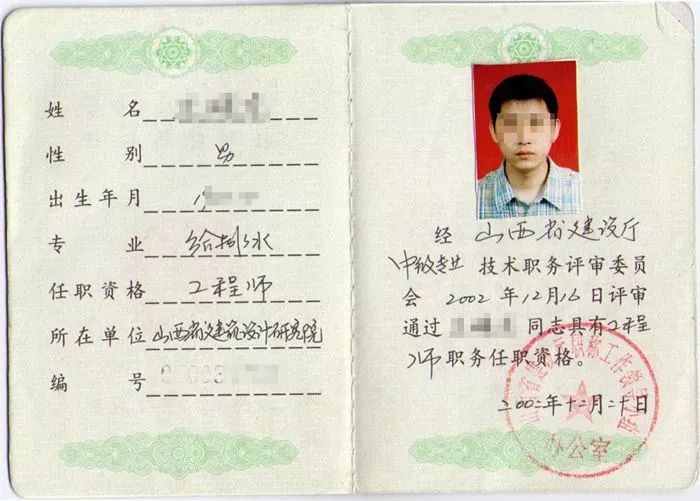 姓 名
性 别 男
出生年月 1
专 业 给排水
任职资格 工程师
所在单位 山西省建筑设计研究院
编 号
经 山西省建设厅
中级专业 技术职务评审委员
会 2002 年 12 月 16 日评审
通过 同志具有 工程
师 职务任职资格。
二00二年十二月二十日
办公室